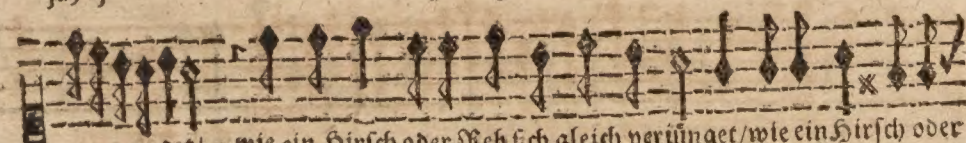 wie ein Hirsch oder Reh sich gleich verjünget/wie ein Hirsch oder